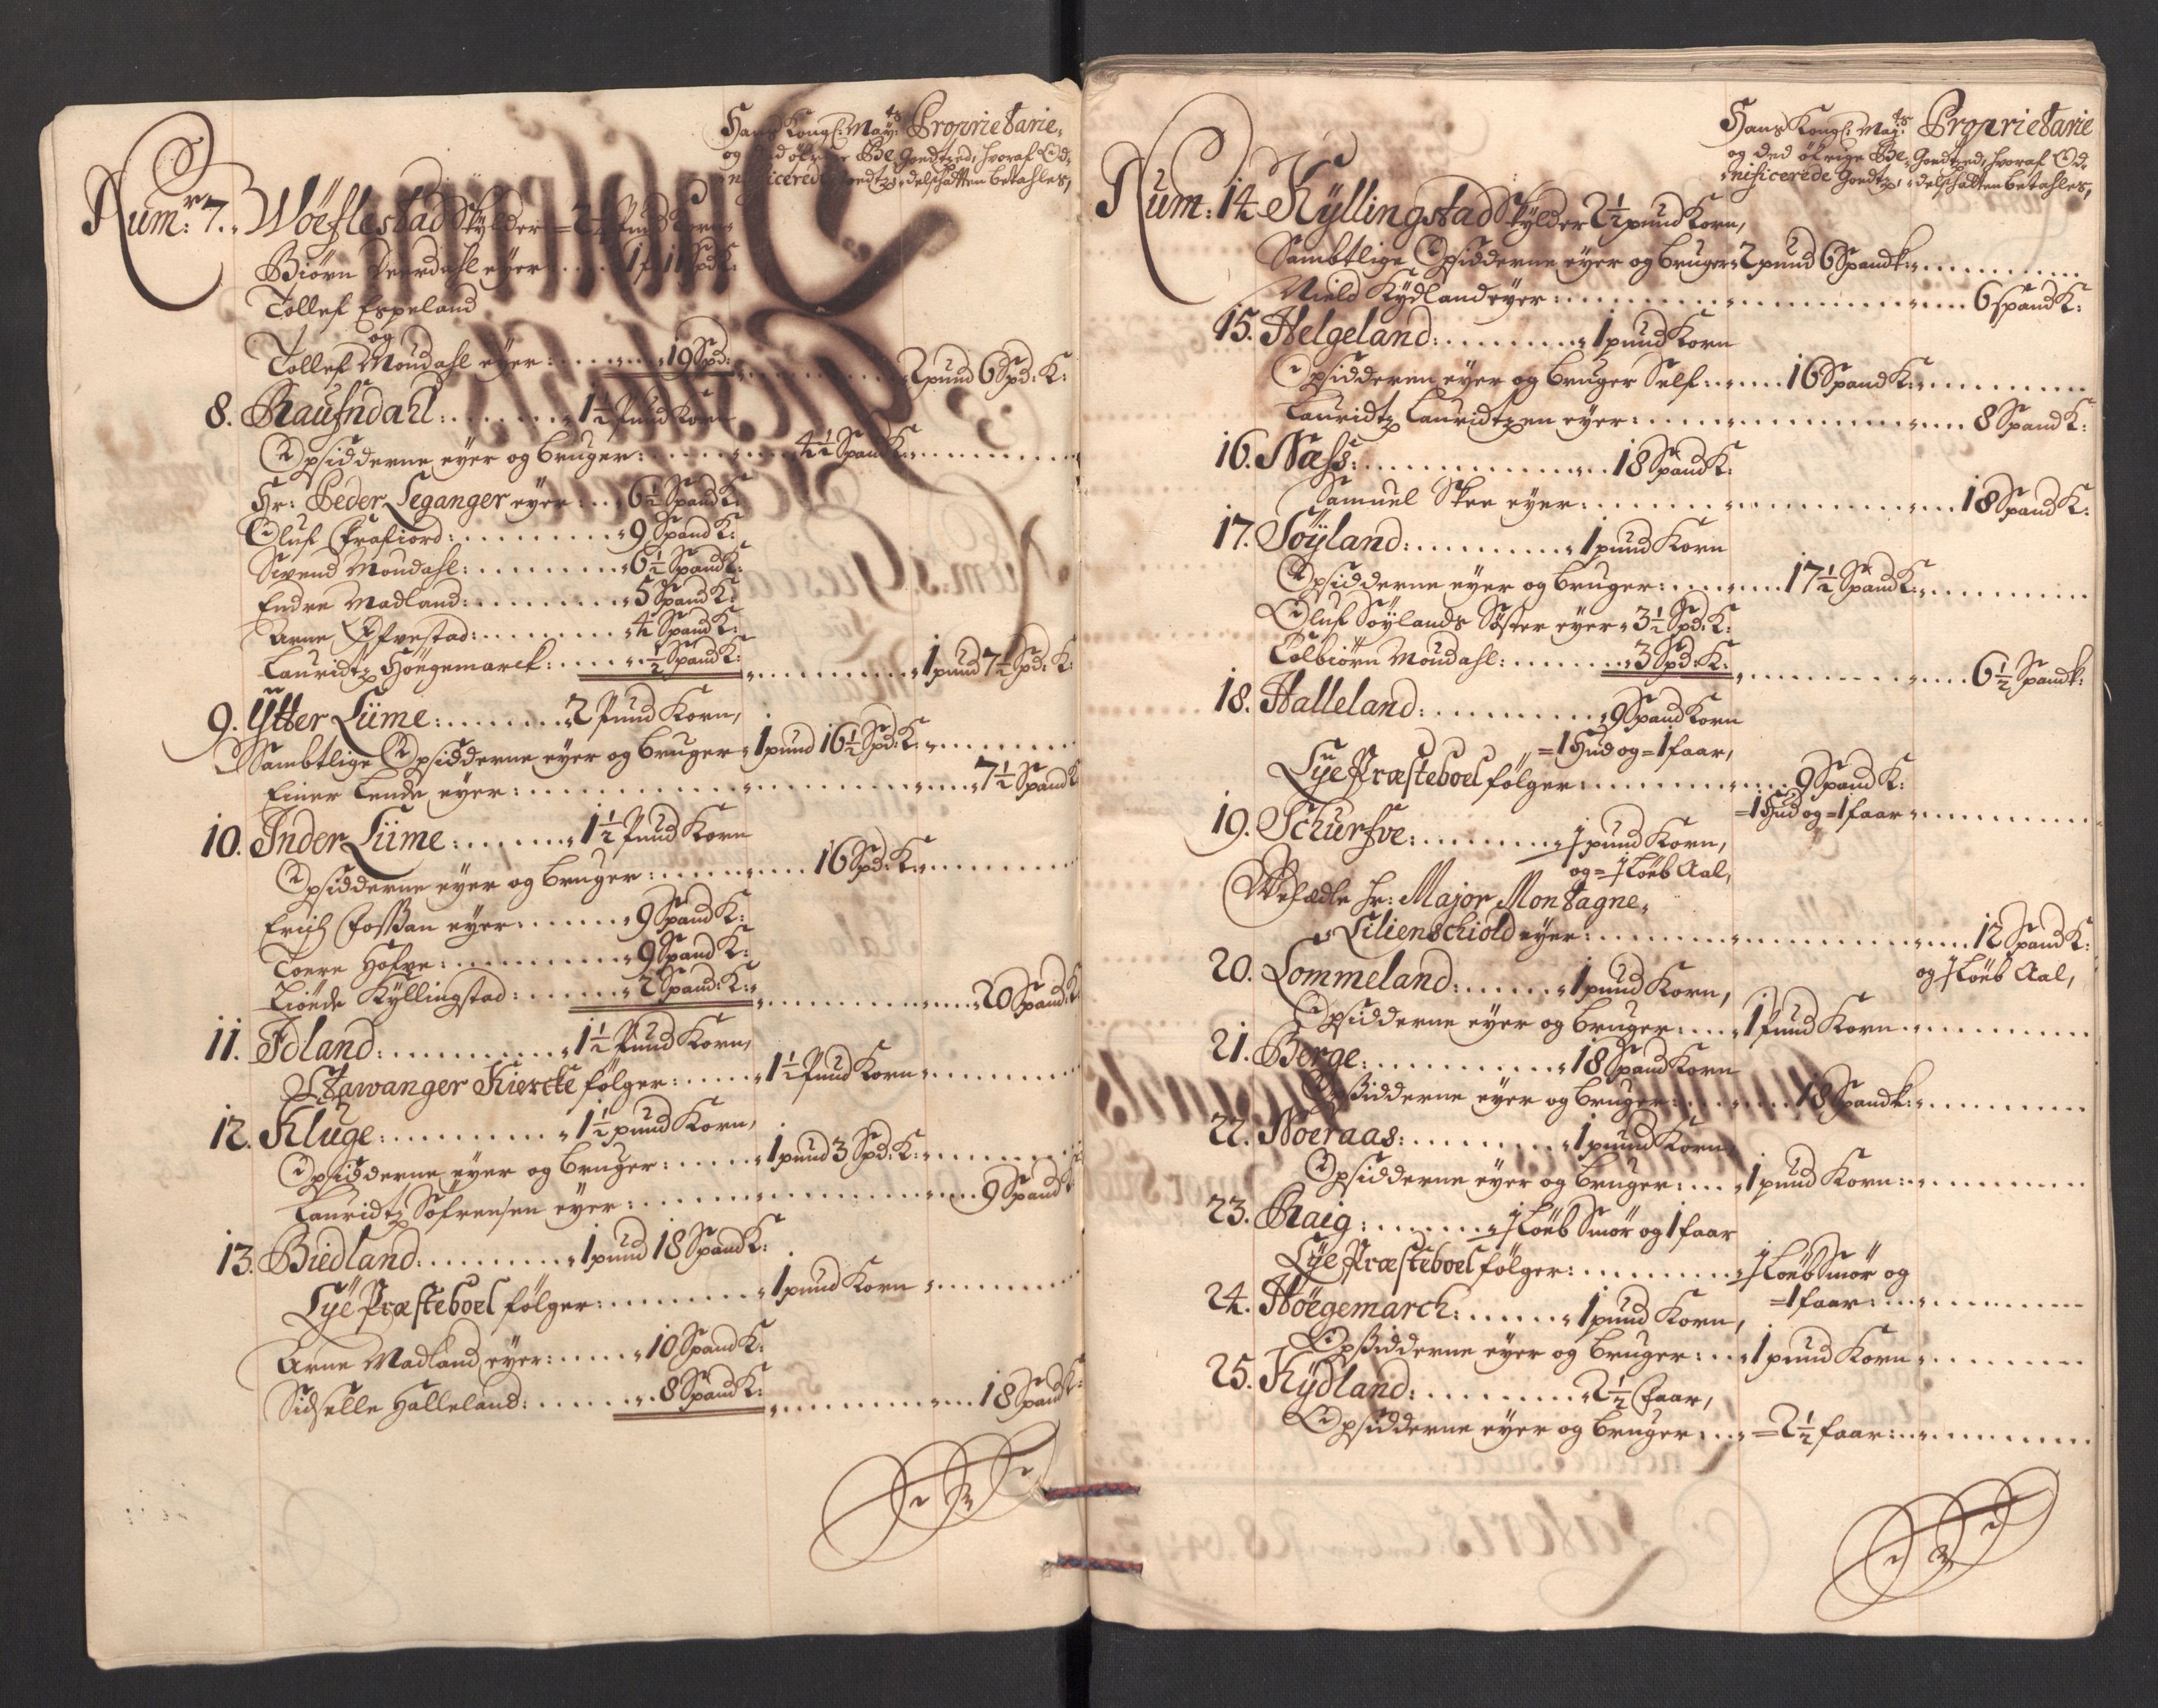 Hans Kongl: May:ts Proprietarie
og ded öfrige Be- Goedtzed, hvoraf Od-
nificerede Goedtz, delschatten betahles,
Num:r 7. Wöeflestad Skylder = 2 1/4 Pund Korn
Biörn Deerdahl eyer .... 1 p 11 Spd K:
Tollef Espeland
og
Tollef Moudahl eyer: .... 19 Spd: .... 2 pund 6 Spd: K:
8. Raufndahl: ........ 1 1/2 Pund Korn
Opsidderne eyer og bruger: .... 4 1/2 Spand K:
Hr: Peder Leganger eyer: ... 6 1/2 Spand K:
Oluf Frafiord: ......... 9 Spand K:
Sivend Moudahl: ........ 6 1/2 Spand K:
Endre Madland: ......... 5 Spand K:
Arne Ofvestad: ........ 4 Spand K:
Lauridtz Höegemarck: ...... 1/2 Spand K: .......... 1 pund 7 1/2 Spd: K:
9. Ytter Liime: ........ 2 Pund Korn,
Sambtlige Opsidderne eyer og bruger 1 pund 16 1/2 Spd: K: ........
Einer Lende eyer: ............ 7 1/2 Spand K
10. Inder Liime: ....... 1 1/2 Pund Korn
Opsidderne eyer og bruger: ........ 16 Spd: K: ..........
Erich Fossan eyer: ...... 9 Spand K:
Toere Hofve: ........... 9 Spand K:
Liöede Kyllingstad: ....... 2 Spand: K: ........... 20 Spand: K
11. Idland: ........... 1 1/2 Pund Korn,
Stawanger Kiercke fölger: ..... 1 1/2 Pund Korn .........
12. Kluge: ......... 1 1/2 pund Korn,
Opsidderne eyer og bruger: ..... 1 pund 3 Spd: K: ........
Lauridtz Söfrensen eyer: .............. 9 Spand K
13. Biedland: ......... 1 pund 18 Spand K:
Lye Præsteboel fölger: ......... 1 pund Korn .........
Arne Madland eyer: ..... 10 Spand K:
Sidselle Halleland: ....... 8 Spand K: ........... 18 Spand K:
Hans Kongl: Maj:ts Proprietarie
og ded öfrige Be- Goedtzed, hvoraf Od-
nificerede Goedtz, delschatten betahles,
Num: 14. Kyllingstad Skylder 2 1/2 pund Korn,
Sambtlige Opsidderne eyer og bruger 2 pund 6 Spand K: ..........
Nield Kydland eyer: ............... 6 Spand K:
15. Helgeland: ......... 1 pund Korn
Opsidderen eyer og bruger Self: ..... 16 Spand K: ..........
Lauridtz Lauridtzen eyer: ............... 8 Spand K:
16. Næss: ............... 18 Spand K:
Samuel Skee eyer: ............... 18 Spand K:
17. Söyland: .......... 1 pund Korn
Opsidderne eyer og bruger: ....... 17 1/2 Spand K: ..........
Oluf Söylands Söster eyer 3 1/2 Spd: K:
Tolbiörn Moudahl: ........ 3 Spd: K: ........... 6 1/2 Spand K:
18. Halleland: .......... 9 Spand Korn
= 1 Hud og = 1 faar,
Lye Præsteboel fölger: .......... 9 Spand K:
= 1 Hud og = 1 faar ..........
19. Schurfve: ......... 1/2 pund Korn,
og = 1/2 Löeb Aal,
Velædle Hr: Major Montagne
Lilienschiold eyer: ............... 12 Spand K:
og 1/2 Löeb Aal,
20. Lommeland: ...... 1 pund Korn,
Opsidderne eyer og bruger: .... 1 Pund Korn ..........
21. Berge: ............ 18 Spand Korn
Opsidderne eyer og bruger: ....... 18 Spand K: ..........
22. Noeraas: .......... 1 pund Korn,
Opsidderne eyer og bruger: .... 1 pund Korn: ..........
23. Raig: ........ 1/2 Löeb Smör og 1 faar
Lye Præsteboel fölger: .......... 1/2 Löeb Smör og
= 1 faar: ..........
24. Höegemarch: ....... 1 pund Korn,
Opsidderne eyer og bruger: ... 1 pund Korn ........
25. Kydland: ......... 2 1/2 faar,
Opsidderne eyer og bruger: ... = 2 1/2 faar: ..........